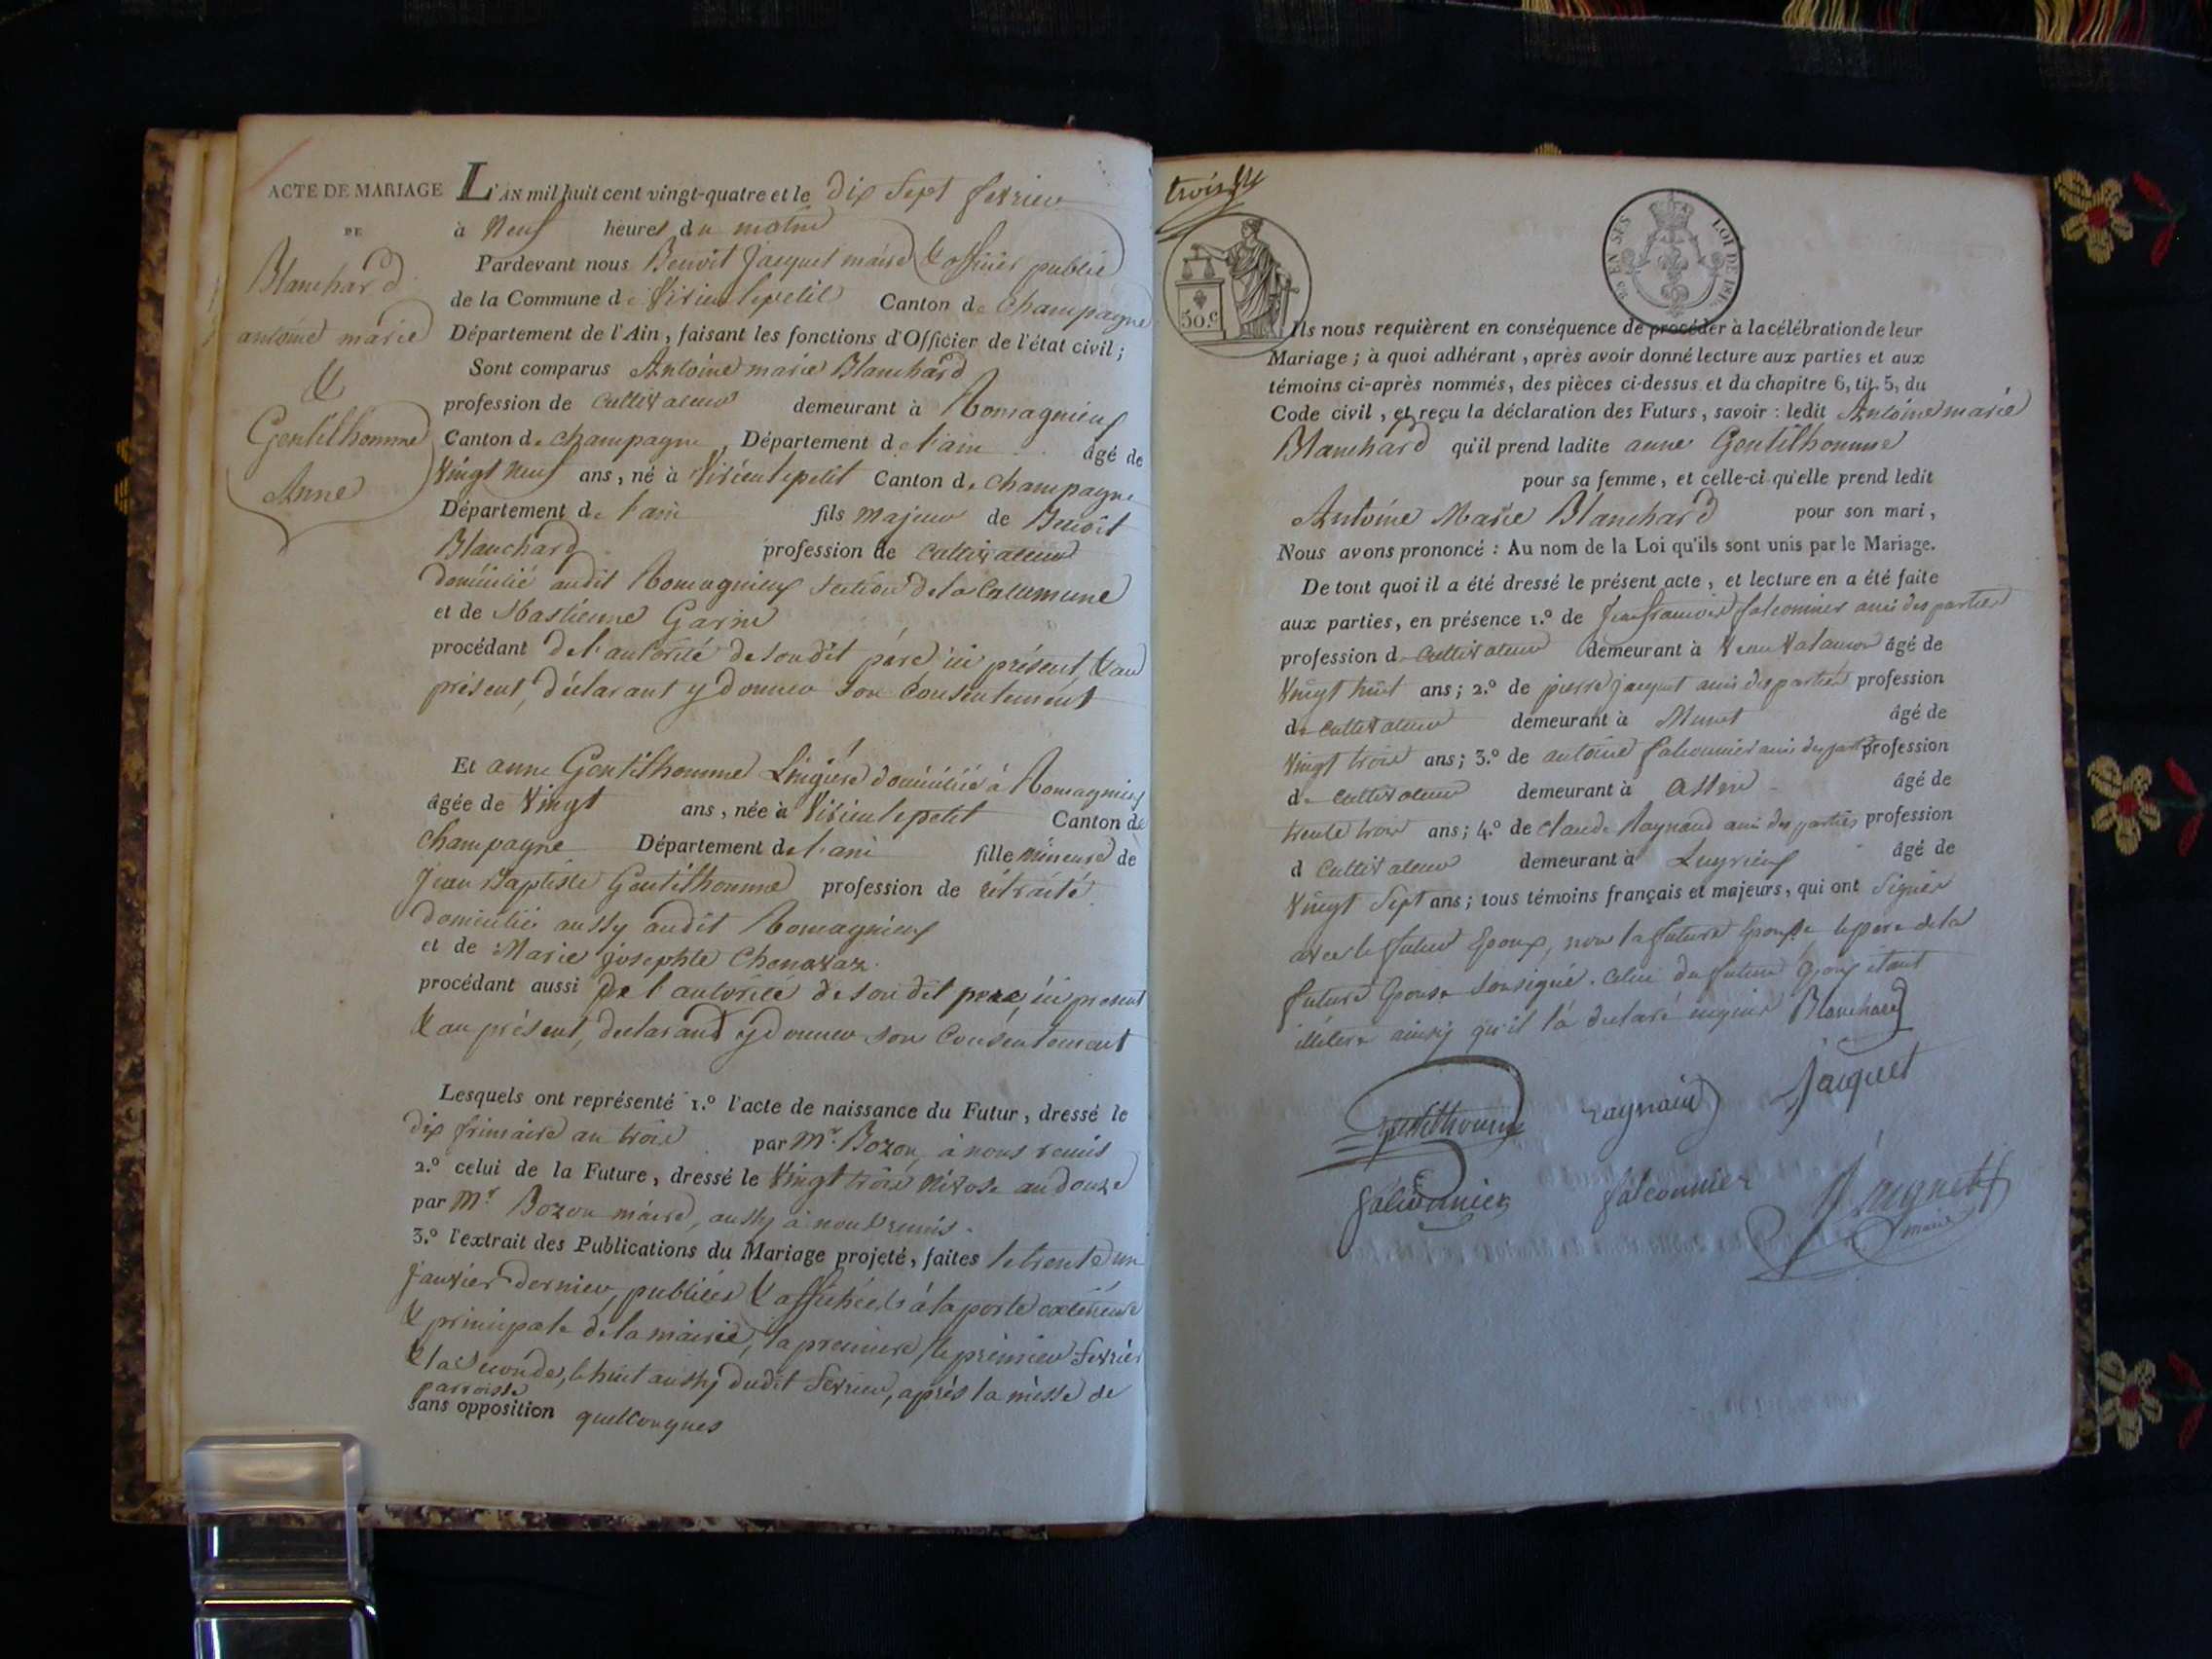 ACTE DE MARIAGE
DE
Blanchard
antoine marie
&
Gentilhomme
Anne
L'AN mil huit cent vingt-quatre et le dix Sept fevrier
à Neuf heures du matin
Pardevant nous Benoit Jacquet maire & officier public
de la Commune de Virieulepetit Canton de Champagne
Département de l'Ain, faisant les fonctions d'Officier de l'état civil;
Sont comparus Antoine marie Blanchard
profession de Cultivateur demeurant à Romagnieux
Canton de champagne Département de l'ain âgé de
Vingt neuf ans, né à Virieulepetit Canton de Champagne
Département de l'ain fils majeur de Benoit
Blanchard profession de Cultivateur
domicilié audit Romagnieux section de la Commune
et de Sbastienne Garin
procédant de l'autorité de son dit père ici présent, & au
présent, déclarant y donner son Consentement
Et anne Gentilhomme Lingière domiciliée à Romagnieux
âgée de Vingt ans, née à Virieulepetit Canton de
Champagne Département de l'ain fille mineure de
Jean Baptiste Gentilhomme profession de rétraité
domicilié aussy audit Romagnieux
et de Marie josephte Chenavaz
procédant aussi de l'autorité de son dit pere, ici present
& au présent, declarand y donner son Consentement
Lesquels ont représenté 1.º l'acte de naissance du Futur, dressé le
dix frimaire an trois par Mr. Bozon, à nous remis
2.º celui de la Future, dressé le Vingt trois Nivose an douze
par Mr Bozon maire, aussy à nous remis.
3.º l'extrait des Publications du Mariage projeté, faites le trente un
janvier dernier, publiées & affichées à la porte extérieure
& principale de la mairie, la premiere, le premier fevrier
& la Seconde, le huit aussy dudit fevrier, après la messe de
parroisse
sans opposition quelconques
trois
50.c
LOI DE 181
Ils nous requièrent en conséquence de procéder à la célébration de leur
Mariage; à quoi adhérant, après avoir donné lecture aux parties et aux
témoins ci-après nommés, des pièces ci-dessus et du chapitre 6, tit. 5, du
Code civil, et reçu la déclaration des Futurs, savoir: ledit Antoine marie
Blanchard qu'il prend ladite anne Gentilhomme
pour sa femme, et celle-ci qu'elle prend ledit
Antoine Marie Blanchard pour son mari,
Nous avons prononcé: Au nom de la Loi qu'ils sont unis par le Mariage.
De tout quoi il a été dressé le présent acte, et lecture en a été faite
aux parties, en présence 1.º de Jean françois falconnier ami des parties
profession de Cultivateur demeurant à âgé de
Vingt huit ans; 2.º de pierre jacquet ami des parties profession
de Cultivateur demeurant à Munet âgé de
Vingt trois ans; 3.º de antoine falconnier ami des parties profession
de Cultivateur demeurant à Assin âgé de
trente trois ans; 4.º de Claude Raynaud ami des parties profession
d Cultivateur demeurant à Luyrieux âgé de
Vingt Sept ans; tous témoins français et majeurs, qui ont Signés
avec le futur Epoux, non la future Epouse le pere de la
future Epouse Sousigné. Celui du futur Epoux étant
illitere ainsy qu'il l'a declaré Blanchard
Gentilhomme raynaud Jacquet
falconnier falconnier Jacquet
maire